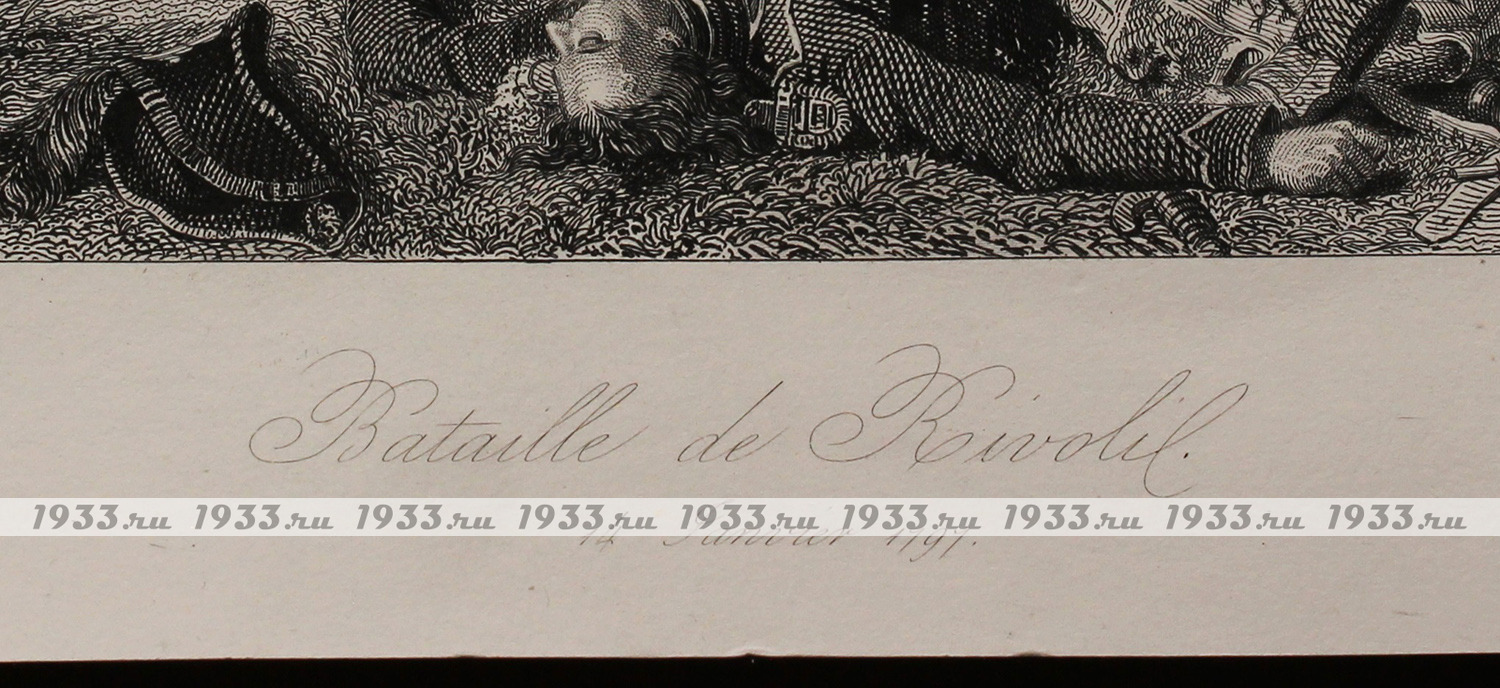 Bataille de Rivolil.
1933.ru 1933.ru 1933.ru 1933.ru 1933.ru 1933.ru 1933.ru 1933.ru 1933.ru
14 Janvier 1797.